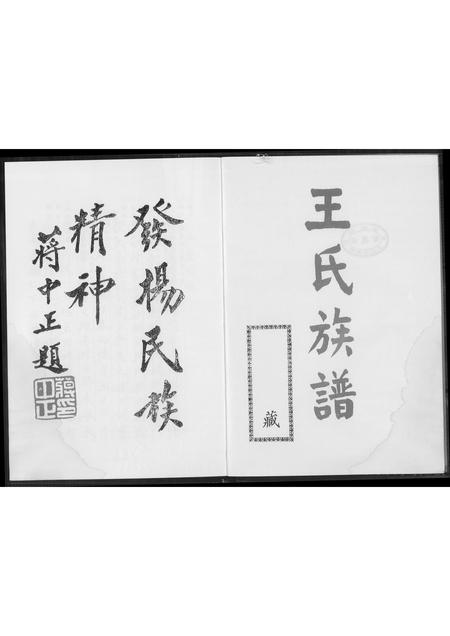 王氏族譜
藏
發楊民族
精神
蔣中正題